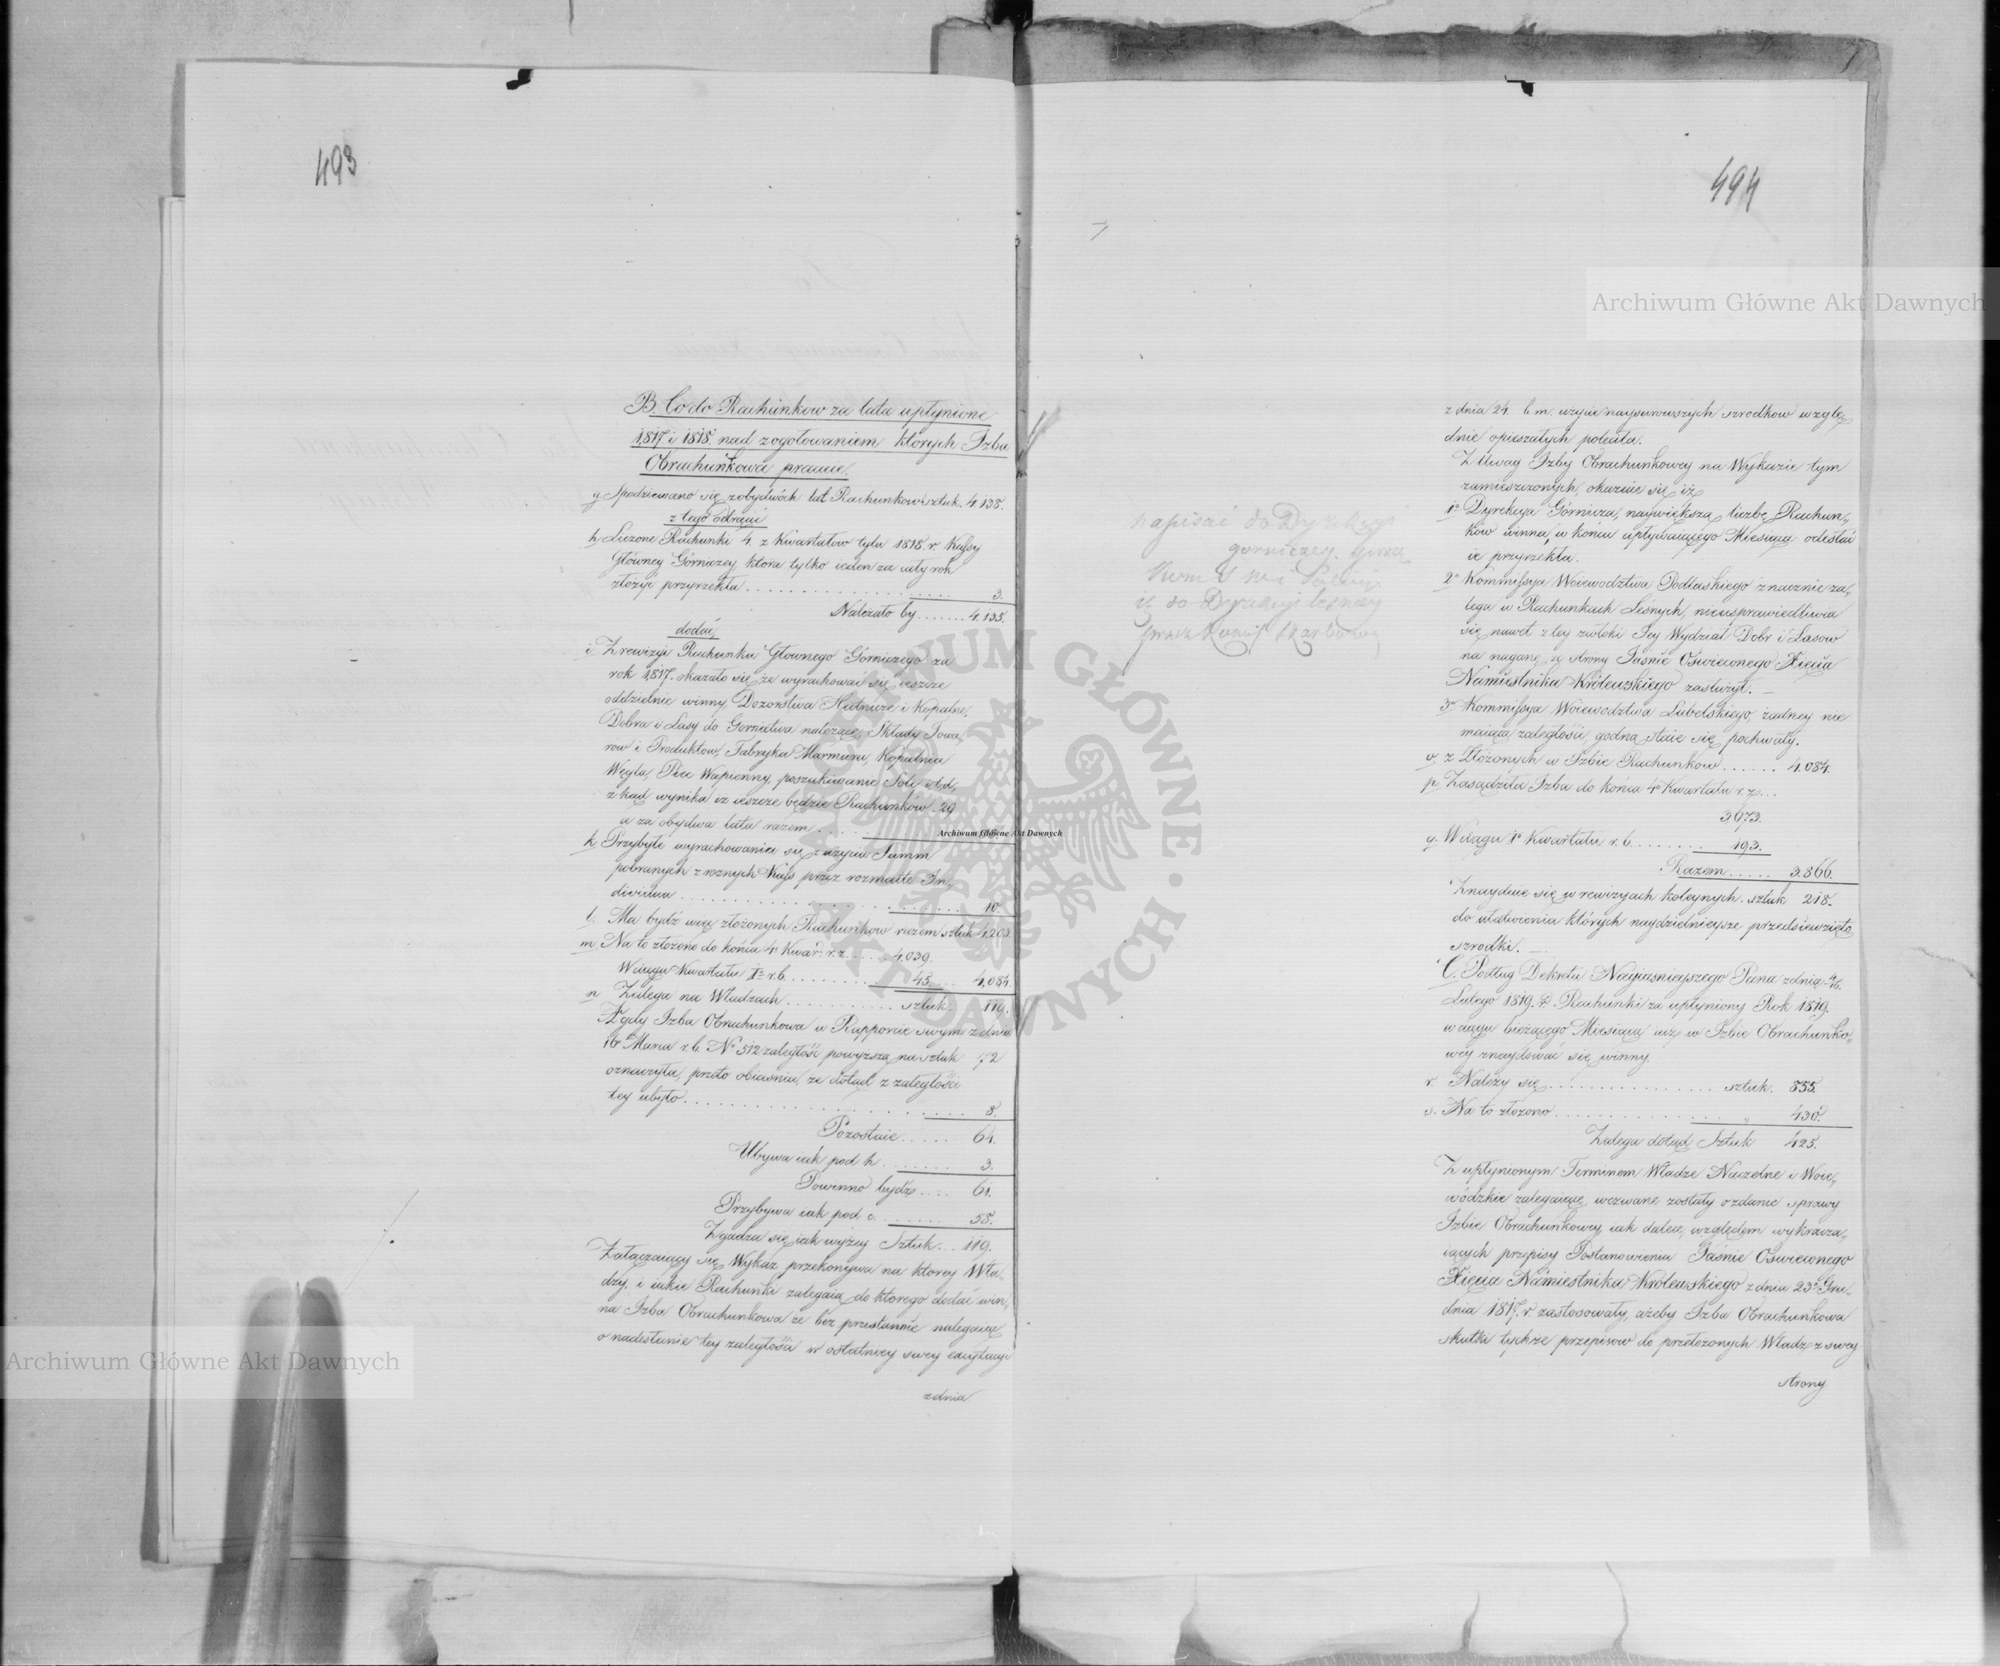 493
B. Co do Rachunkow za lata upłynione
1817 i 1818 nad zogotowaniem których Izba
Obrachunkowa pracuie.
g Spodziewano się z obydwóch lat Rachunkow sztuk. 4138.
z tego odtrącić
h Liczone Rachunki 4. z Kwartałow tylu 1818 r. Kassy
Główney Górniczey, która tylko ieden za cały rok
złożyć przyrzekła . . . . . . 3.
Należało by . . . . . . 4,135.
dodać,
i Z rewizyi Rachunku Głownego Górniczego za
rok 1817. okazało się że wyrachować się ieszcze
oddzielnie winny, Dozorstwa Hutnicze i Kopalne,
Dobra i Lasy do Gornictwa należące, Składy Towa„
row i Produktow, Fabryka Marmuru, Kopalnia
Węgla, Piec Wapienny, poszukiwanie Soli, etd,
zkąd wynika iż ieszcze będzie Rachunków 29
a za obydwa lata razem . . . . 58.
k Przybyłe wyrachowania się z użycia Summ
pobranych z roznych Kass przez rozmaite In„
dividua . . . . . . 10
l. Ma bydź więc złożonych Rachunkow razem sztuk 4,203
m Na to złożono do końca 4o Kwar: r. z. . . . . 4,039.
W ciągu Kwartału Igo r. b. . . . . . . 45. 4,084.
n Zalega na Władzach . . . . . . sztuk 119.
A gdy Izba Obrachunkowa w Rapporcie swym z dnia
16 Marca r. b. No 512 zaległość powyższą na sztuk 72
oznaczyła, przeto obiaśnia, że dotąd z zaległości
tey ubyło . . . . . . 8.
Pozostaie . . . . . 64.
Ubywa iak pod h . . . . . . 3.
Powinno bydź . . . . 61.
Przybywa iak pod i. . . . . . . 58.
Zgadza się iak wyżey Sztuk . . . 119.
Załączaiący się Wykaz przekonywa na którey Wła„
dzy, i iakie Rachunki zalegaią, do ktorego dodać win„
na Izba Obrachunkowa że bez przestannie nalegaiąc
o nadesłanie tey zaległości w ostatniey swey excytacyi
z dnia
494
napisać do Dyrekcyi
gorniczey.
przez Kommis Skarbową
z dnia 24. b. m. użycie naysurowszych srrodkow wzglę„
dnie opieszałych poleciła.
Z Uwag Izby Obrachunkowey na Wykazie tym
zamieszczonych, okazuie się iż
1o Dyrekcya Górnicza, naywiększą liczbę Rachun„
ków winna, w końcu upływaiącego Miesiąca odesłać
ie przyrzekła.
2o Kommissya Woiewodztwa Podlaskiego znacznie za„
lega w Rachunkach Leśnych, nieusprawiedliwia
się nawet z tey zwłoki Jey Wydział Dobr i Lasow
na naganę ze strony Jaśnie Oświeconego Xięcia
Namiestnika Królewskiego zasłużył. —
3o Kommissya Woiewodztwa Lubelskiego, żadney nie
maiąca zaległości, godną staie się pochwały.
o. z Złożonych w Izbie Rachunkow . . . . . . 4,084.
p. Zasądziła Izba do końca 4o Kwartału r. z. . . .
3,673.
q. W ciągu Io Kwartału r. b. . . . . . . 193.
Razem . . . . . 3,866.
Znayduie się w rewizyach koleynych . sztuk 218.
do ułatwienia których naydzielnieysze przedsiewzięto
szrodki. —
C. Podług Dekretu Nayiasnieyszego Pana z dnia 4/16.
Lutego 1819. r. Rachunki za upłyniony Rok 1819.
w ciągu bieżącego Miesiąca iuż w Izbie Obrachunko„
wey znaydować się winny.
r. Należy się . . . . . . sztuk. 855.
s. Na to złożono . . . . . . „ 430.
Zalega dotąd Sztuk 425.
Z upłynionym Terminem Władze Naczelne i Woie„
wódzkie zalegaiące, wezwane zostały o zdanie sprawy
Izbie Obrachunkowey, iak dalece, względem wykracza„
iących przepisy Postanowienia Jaśnie Oświeconego
Xięcia Namiestnika Królewskiego z dnia 23o Gru„
dnia 1817. r zastosowały, ażeby Izba Obrachunkowa
skutki tychże przepisow do przełożonych Władz z swey
strony
Archiwum Główne Akt Dawnych
Archiwum Główne Akt Dawnych
Archiwum Główne Akt Dawnych
ARCHIWUM GŁÓWNE AKT DAWNYCH